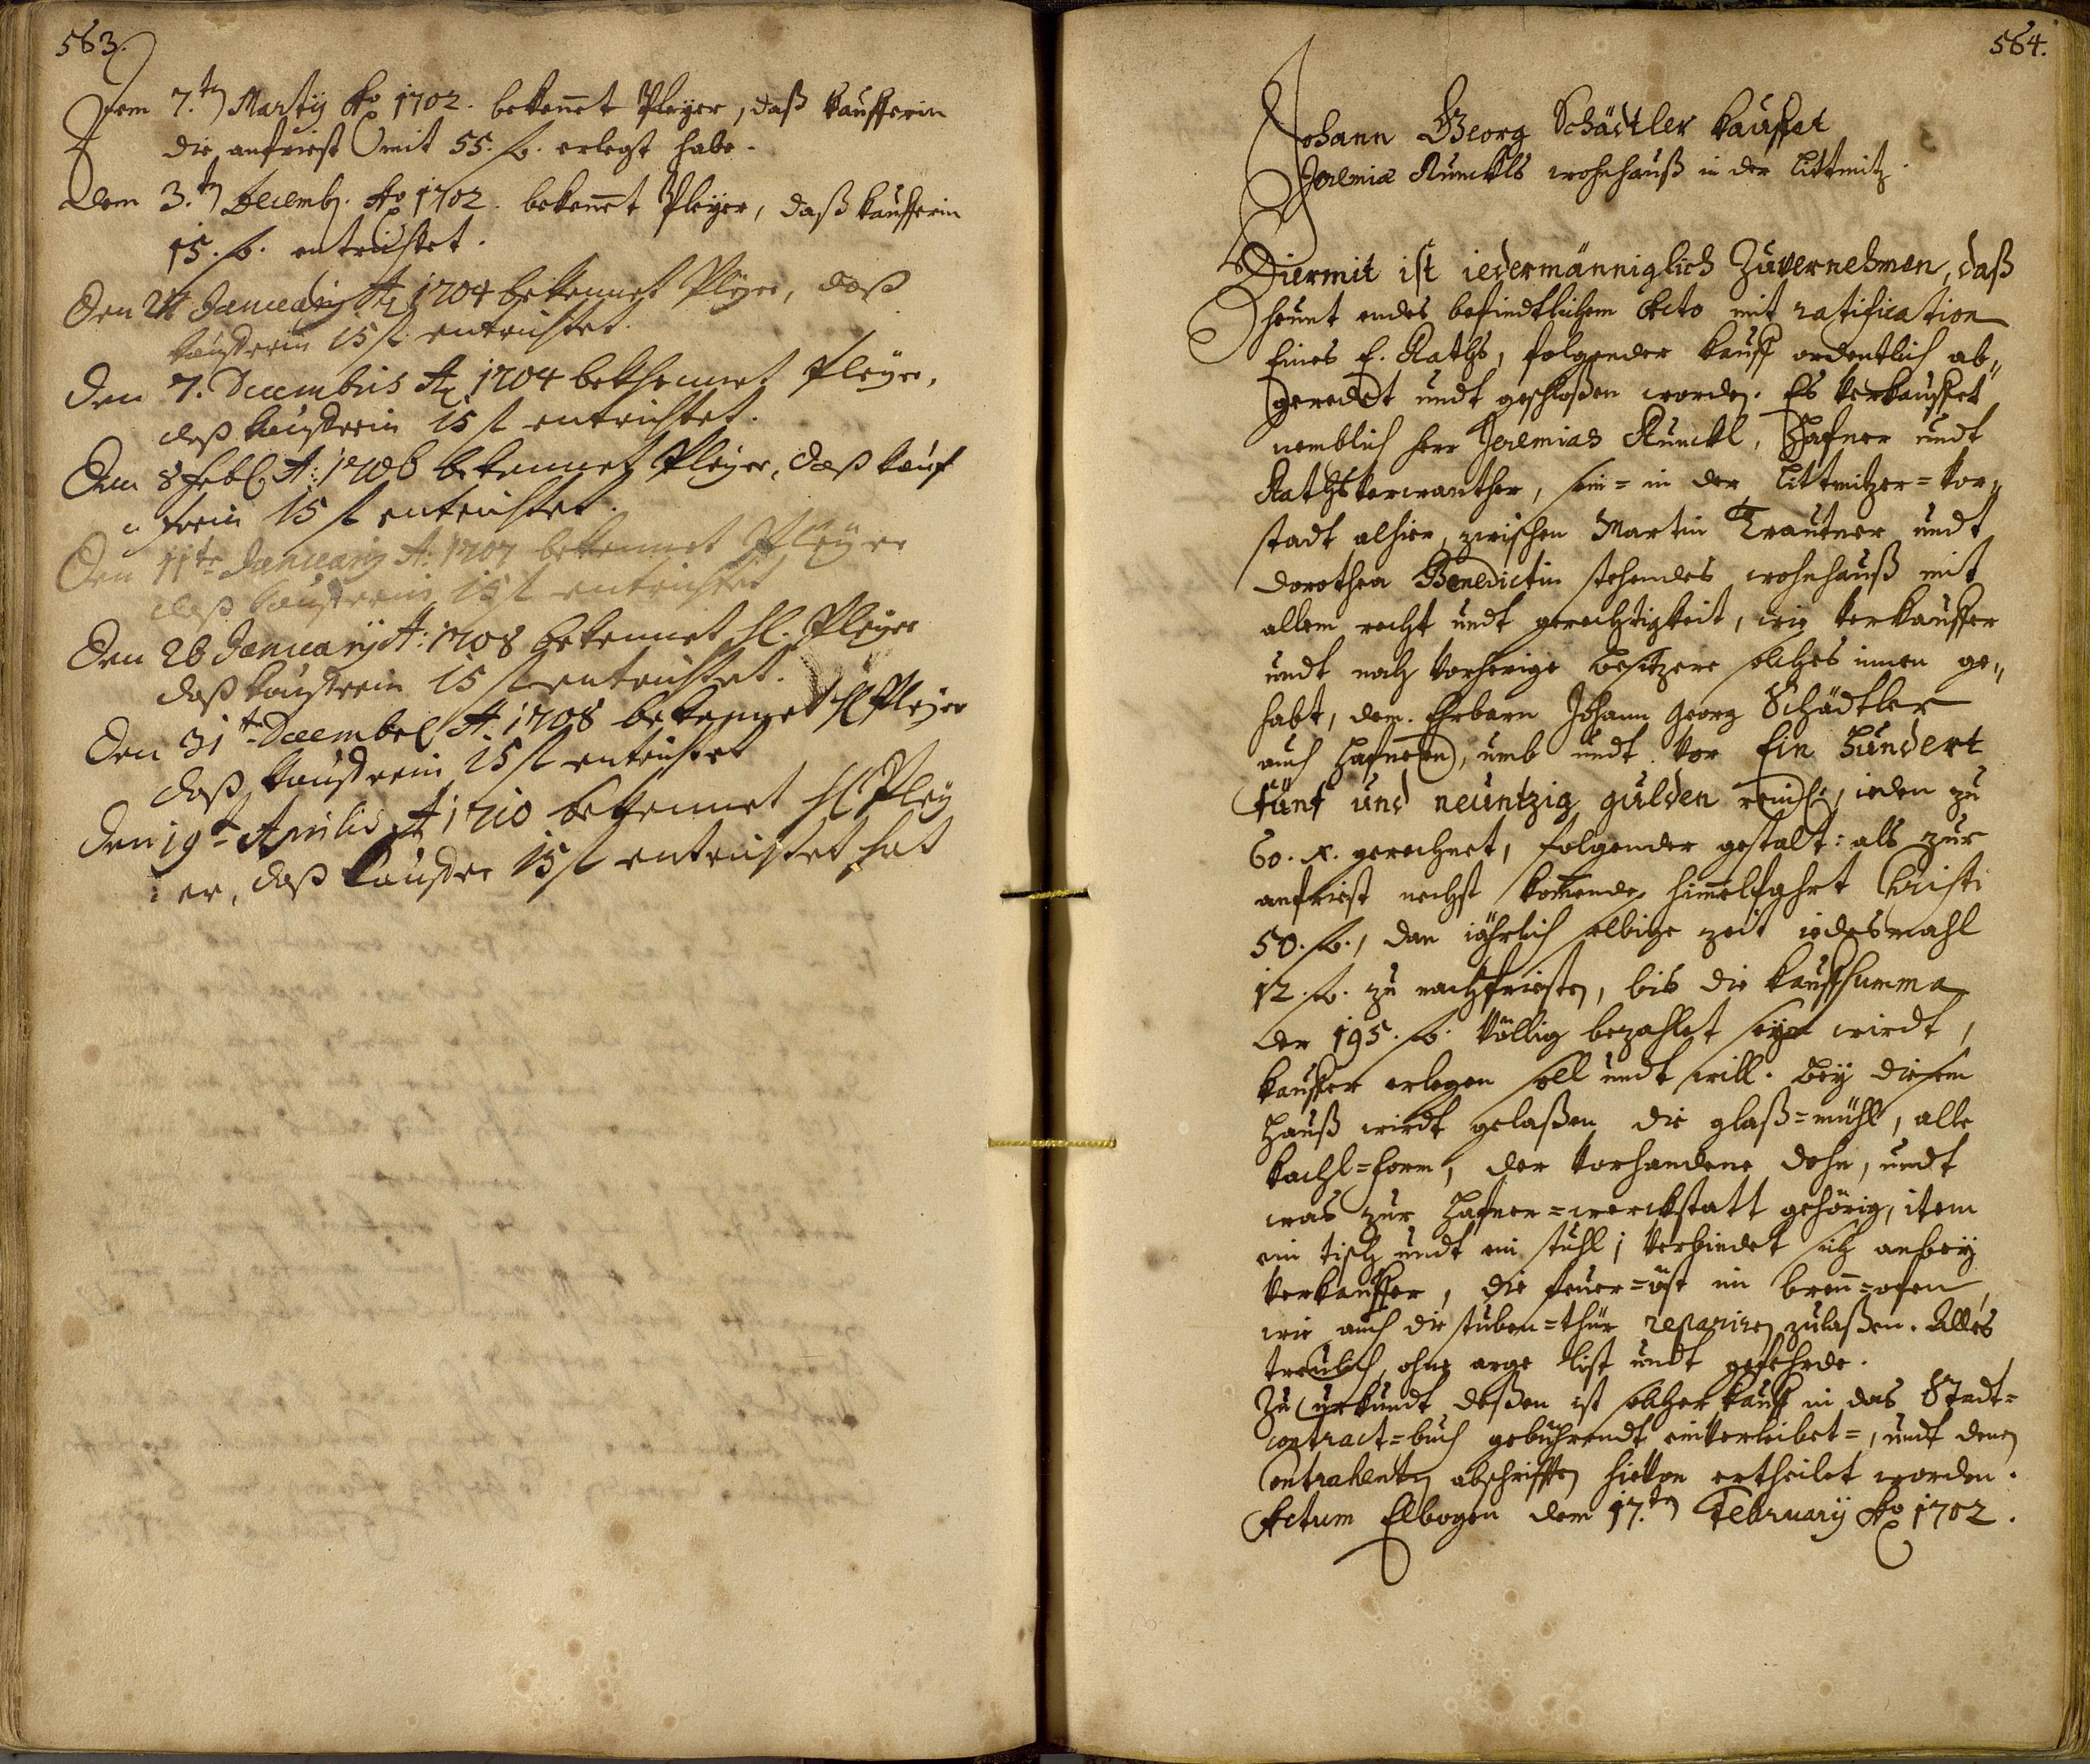 563.
Dem 7.ten Martij Ao 1702. bekenet Pleyer, daß kaufferin
die anfriest mit 55. fl. erlegt habe.
Dem 3.ten Decemb. Ao 1702. bekenet Pleyer, daß kaufferin
15. fl. entrichtet.
Den Januarij A 1704 bekennet Pleyer, daß
kaufferin 15 fl entrichtet.
Den 7. Decembris A 1704 bekhennet Pleyer,
daß kaufferin 15 fl entrichtet.
Den 8 Feb. A: 1706 bekennet Pleyer, daß kauf
ferin 15 fl entrichtet.
Den 11te Januarij A: 1707 bekennet Pleyer
daß kaufferin 15 fl entrichtet
Den 26 Januarij A: 1708 bekennet H. Pleyer
daß kaufferin 15 fl entrichtet.
Den 31te Decembe A. 1708 bekennet H Pleyer
daß kaufferin 15 fl entrichtet
Den 19t Aprilis A 1710 bekennet H Pley
er, daß kauffer 15 fl entrichtet hat
564.
Johann Georg Schädtler kauffet
Jeremiæ Runckls wohnhauß in der Littmitz.
Hiermit ist iedermänniglich Zuvernehmen, daß
heunt endes befindtlichem dato mit ratification
Eines E. Raths, folgender kauff ordentlich ab„
geredet undt geschloßen worden. Es verkauffet
nemblich herr Jeremias Runckl, Hafner undt
Rathsverwanther, sein= in der Littmitzer=vor„
stadt alhier, zwischen Martin Trautner undt
Dorothea Benedictin stehendes wohnhauß mit
allem recht undt gerechtigkeit, wie verkauffer
undt nach vorherige besitzere solches innen ge„
habt, dem Ehrbarn Johann Georg Schädtler
auch Hafnern, umb undt vor Ein Hundert
fünf und neuntzig gulden reinl., ieden zu
60. x. gerechnet, folgender gestalt: als zur
anfriest nechst komende himelfahrt Christi
50. fl., dan iährlich selbige zeit iedesmahl
12. fl. zu nachfristen, bis die kauffsumma
der 195. fl. völlig bezahlet seyn wirdt,
kauffer erlegen soll undt will. Bey diesem
Hauß wirdt gelaßen die glaß=mühl, alle
kachl=form, der vorhandene dohn, undt
was zur Hafner=werckstatt gehörig, item
ein tisch undt ein stuhl; verbindet sich anbey
verkauffer, die feuer=öst im bren=ofen,
wie auch die stuben=thür repariren zulaßen. Alles
treulich, ohne arge list undt gefehrde.
Zu urkundt deßen ist solcher kauff in das Stadt=
contract=buch gebührendt einverleibet=, undt denen
Contrahenten abschrifften hievon ertheilet worden.
Actum Elbogen dem 17.ten February Ao 1702.